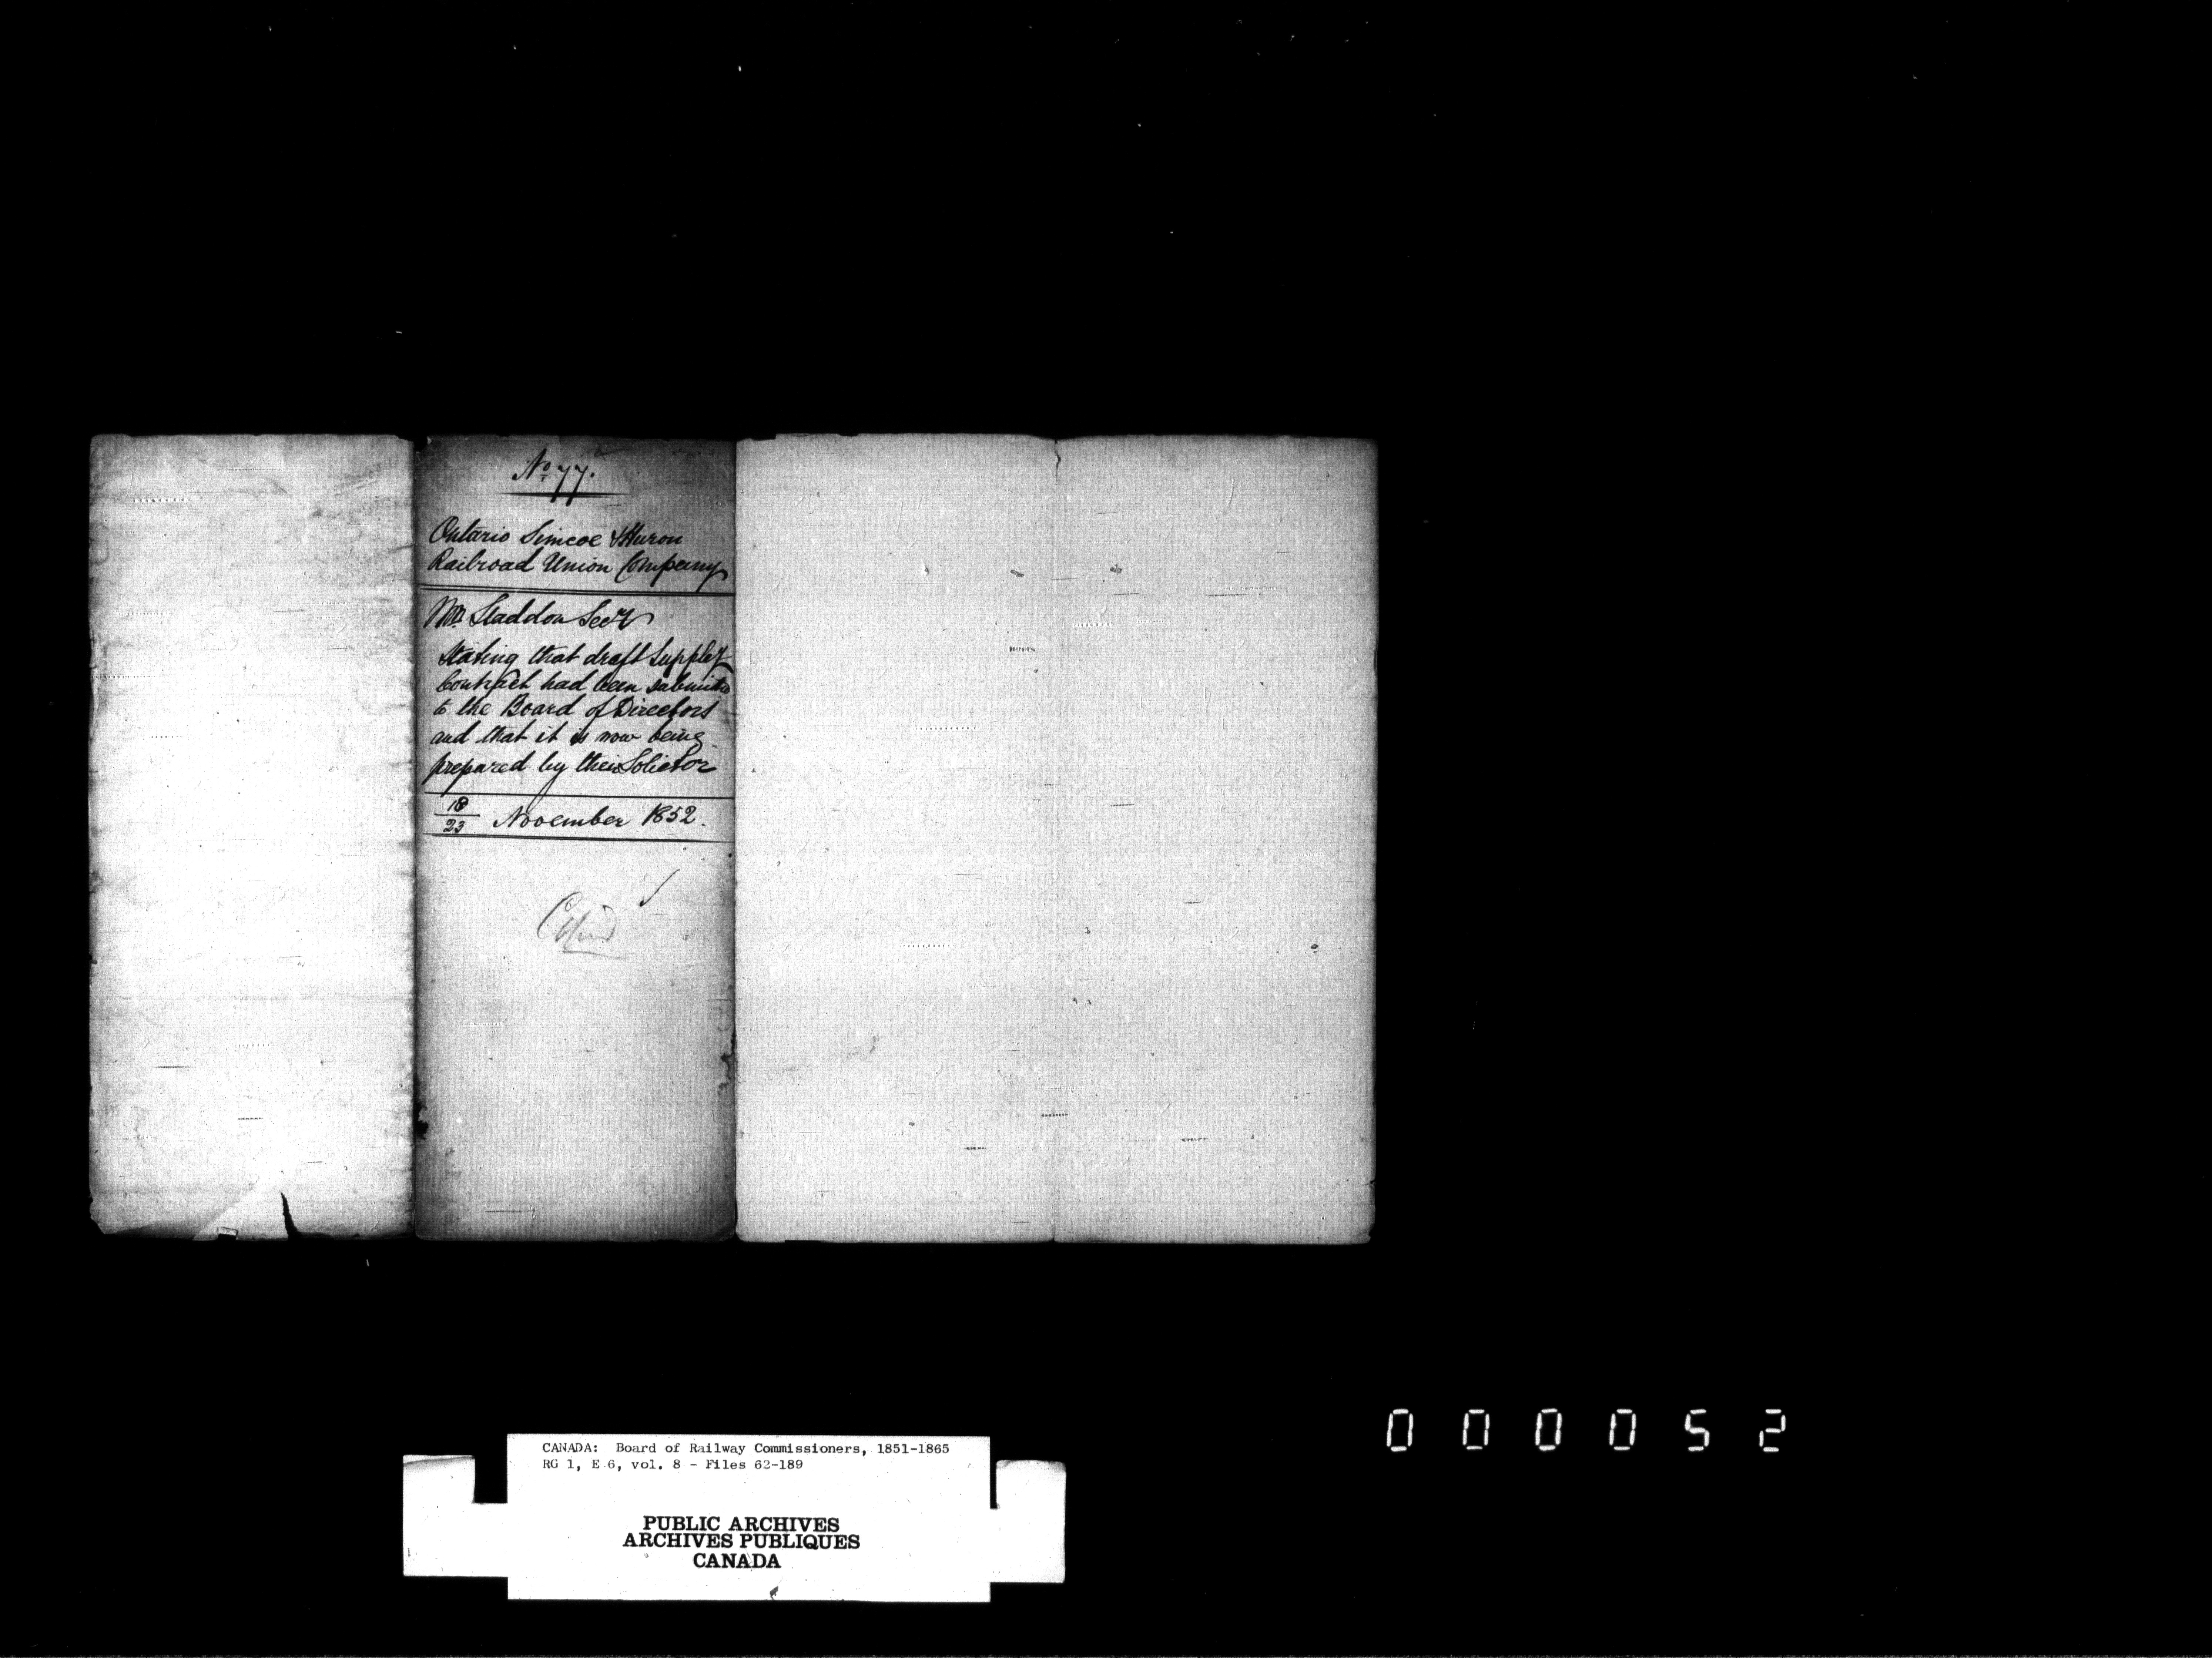 No 77.
Ontario Simcoe & Huron
Railroad Union Company
Mr. Sladdon Secy
Stating that draft Suppley
Contract had been submitted
to the Board of Directors
and that it is now being
prepared by their Solicitor
18
23 November 1852.
Copied
CANADA: Board of Railway Commissioners, 1851-1865
RG 1, E 6, vol. 8 - Files 62-189
PUBLIC ARCHIVES
ARCHIVES PUBLIQUES
CANADA
0 0 0 0 5 2